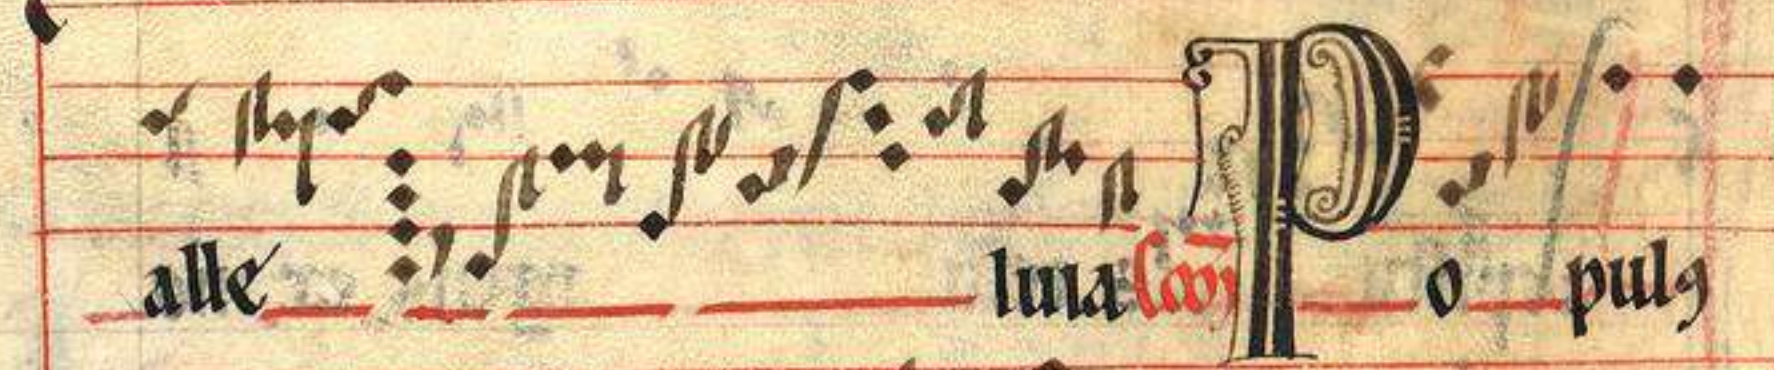 alle luia com̄ Populꝯ